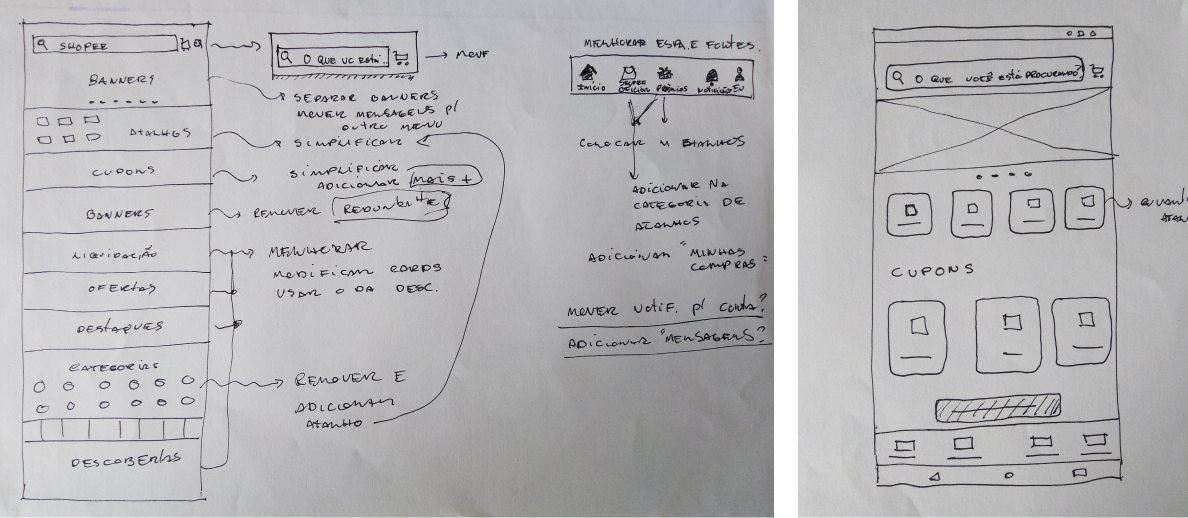 SHOPEE
BANNERS
ATALHOS
CUPONS
BANNERS
LIQUIDAÇÃO
OFERTAS
DESTAQUES
CATEGORIAS
DESCOBERTAS
O QUE VC ESTÁ..
SEPARAR BANNERS
MOVER MENSAGENS P/
OUTRO MENU
SIMPLIFICAR
SIMPLIFICAR
ADICIONAR MAIS +
REMOVER
MELHORAR
MODIFICAR CARDS
USAR O DA DESC.
REMOVER E
ADICIONAR
ATALHO
MELHORAR ESPA. E FONTES.
Início SHOPEE OFICIAL PRÊMIOS NOTIFICAÇÃO EU
COLOCAR
ADICIONAR NA
CATEGORIA DE
ATALHOS
ADICIONAR "MINHAS
COMPRAS"
MOVER NOTIF. P/ CONTA?
ADICIONAR "MENSAGENS"?
O QUE VOCÊ ESTÁ PROCURANDO?
CUPONS